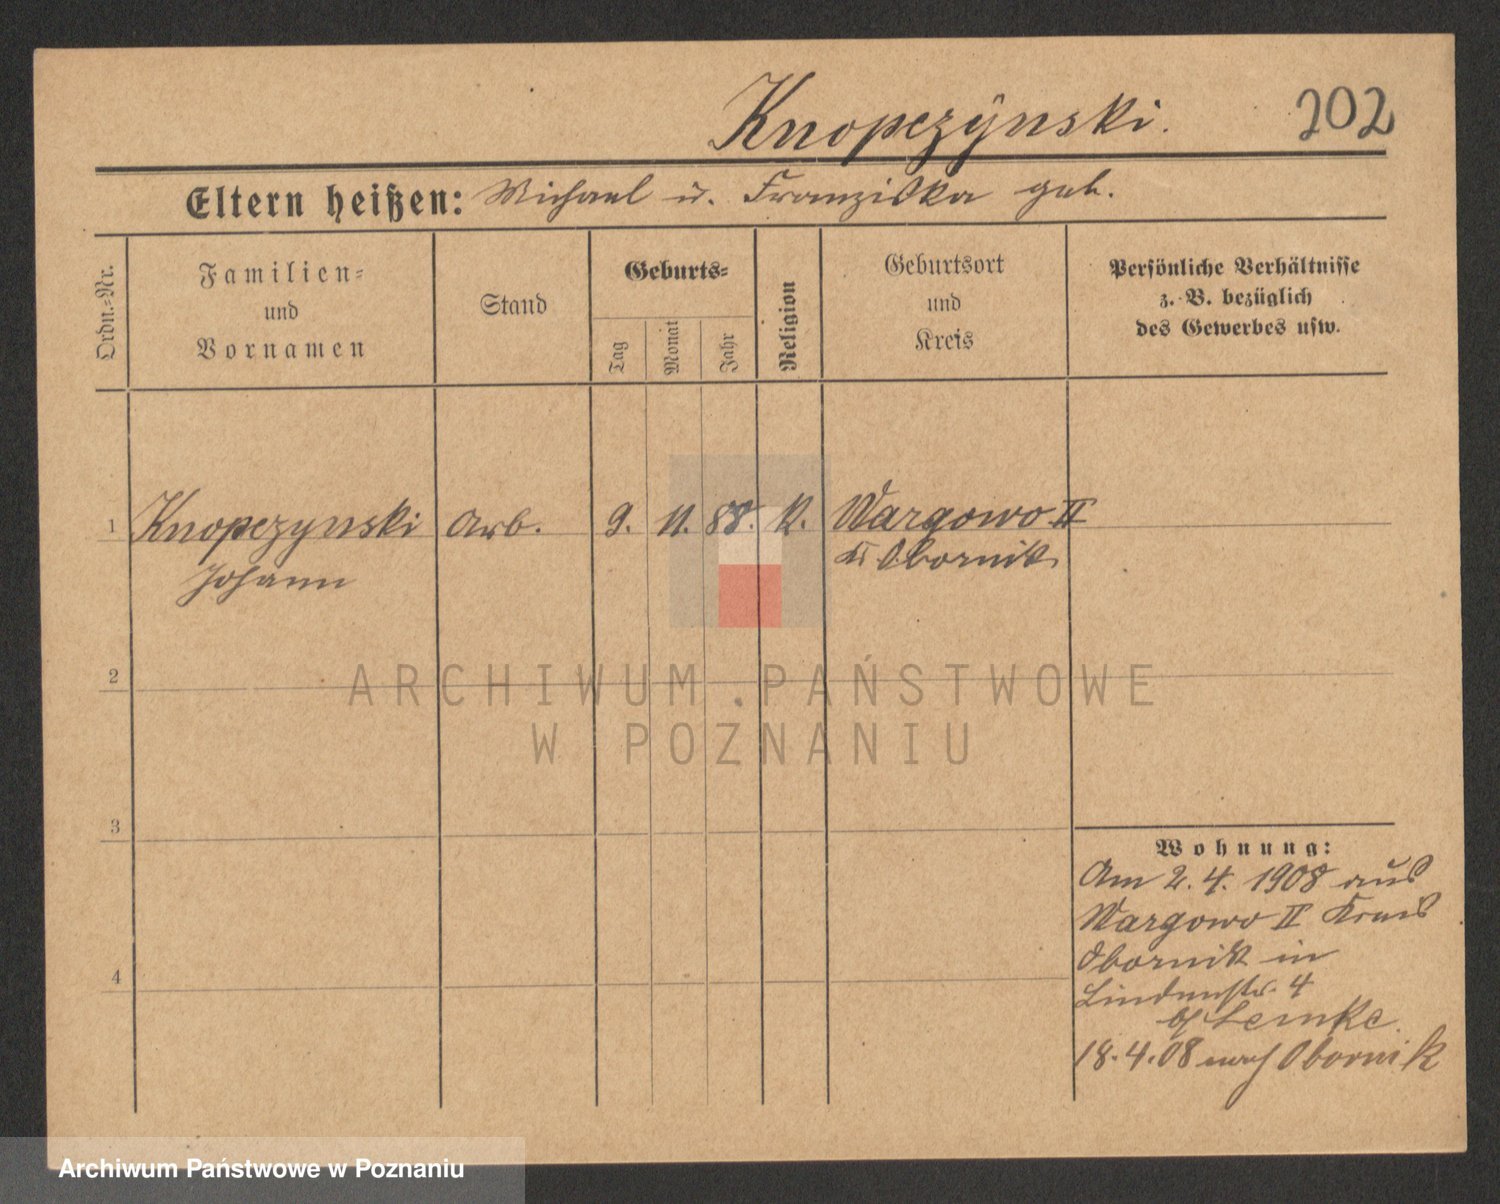 Knopczÿnski.
202
Eltern heißen: Michael u. Franziska geb.
Ordn.=Nr.
Familien=
und
Vornamen
Stand
Geburts=
Tag
Monat
Jahr
Religion
Geburtsort
und
Kreis
Persönliche Verhältnisse
z. B. bezüglich
des Gewerbes usw.
1 Knopczynski Arb. 9. 11. 88. K. Wargowo II
Johann Kr Obornik
2
ARCHIWUM PAŃSTWOWE
W POZNANIU
3
Wohnung:
Am 2. 4. 1908 aus
Wargowo II Kreis
Obornik in
4
Lindenstr. 4
b/ Lemke.
18.4.08 nach Obornik
Archiwum Państwowe w Poznaniu